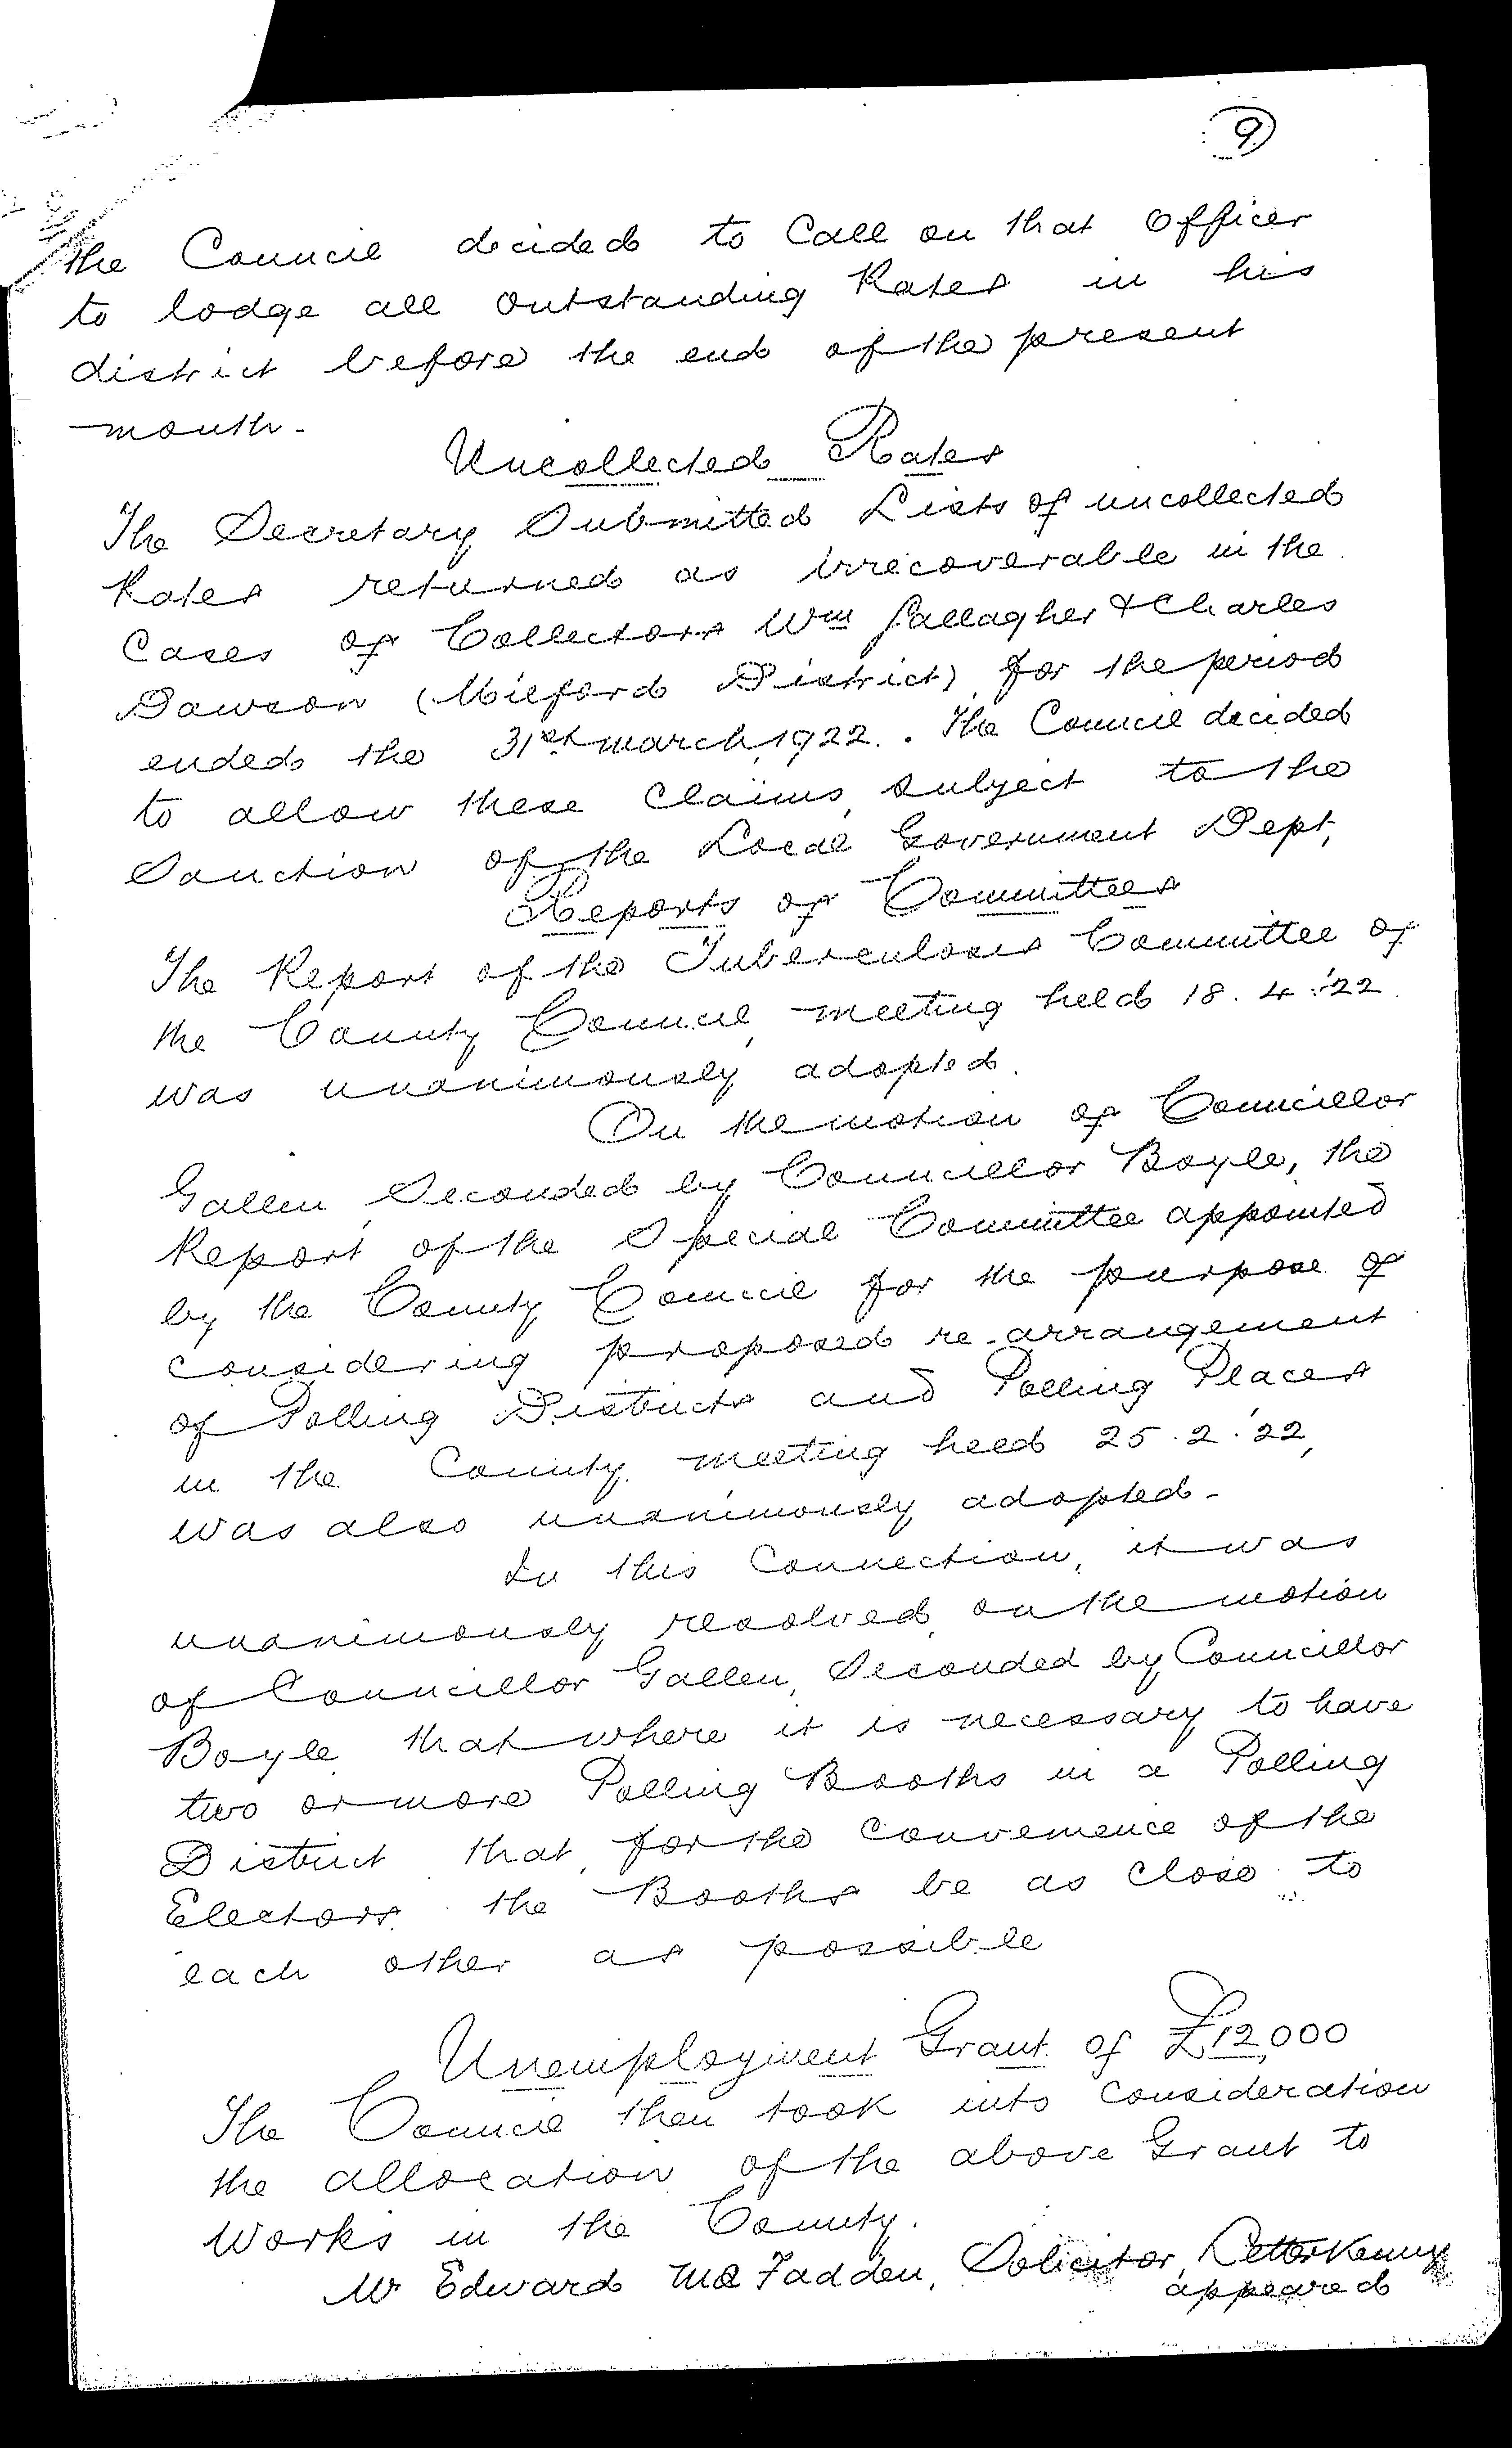 9
the Council decided to Call on that Officer
to lodge all outstanding Rates in his
district before the end of the present
month.
Uncollected Rates
The Secretary Submitted Lists of uncollected
Rates returned as irrecoverable in the
Cases of Collectors Wm Gallagher & Charles
Dawson (Milford District) for the period
ended the 31st march, 1922. The Council decided
to allow these Claims, subject to the
Sanction of the Local Government Dept,
Reports of Committees
The Report of the Tuberculosis Committee of
the County Council, meeting held 18.4.'22
was unanimously adopted.
On the motion of Councillor
Gallen, Seconded by Councillor Boyle, the
Report of the Special Committee appointed
by the County Council for the purpose of
Considering proposed re-arrangement
of Polling Districts and Polling Places
in the County. meeting held 25.2.'22,
was also unanimously adopted.
In this Connection, it was
unanimously resolved, on the motion
of Councillor Gallen, Seconded by Councillor
Boyle, that where it is necessary to have
two or more Polling Booths in a Polling
District, that, for the convenience of the
Electors, the Booths be as Close to
each other as possible
Unemployment Grant of £12,000
The Council then took into Consideration
the allocation of the above Grant to
Works in the County.
Mr Edward McFadden, Solicitor, Letterkenny
appeared